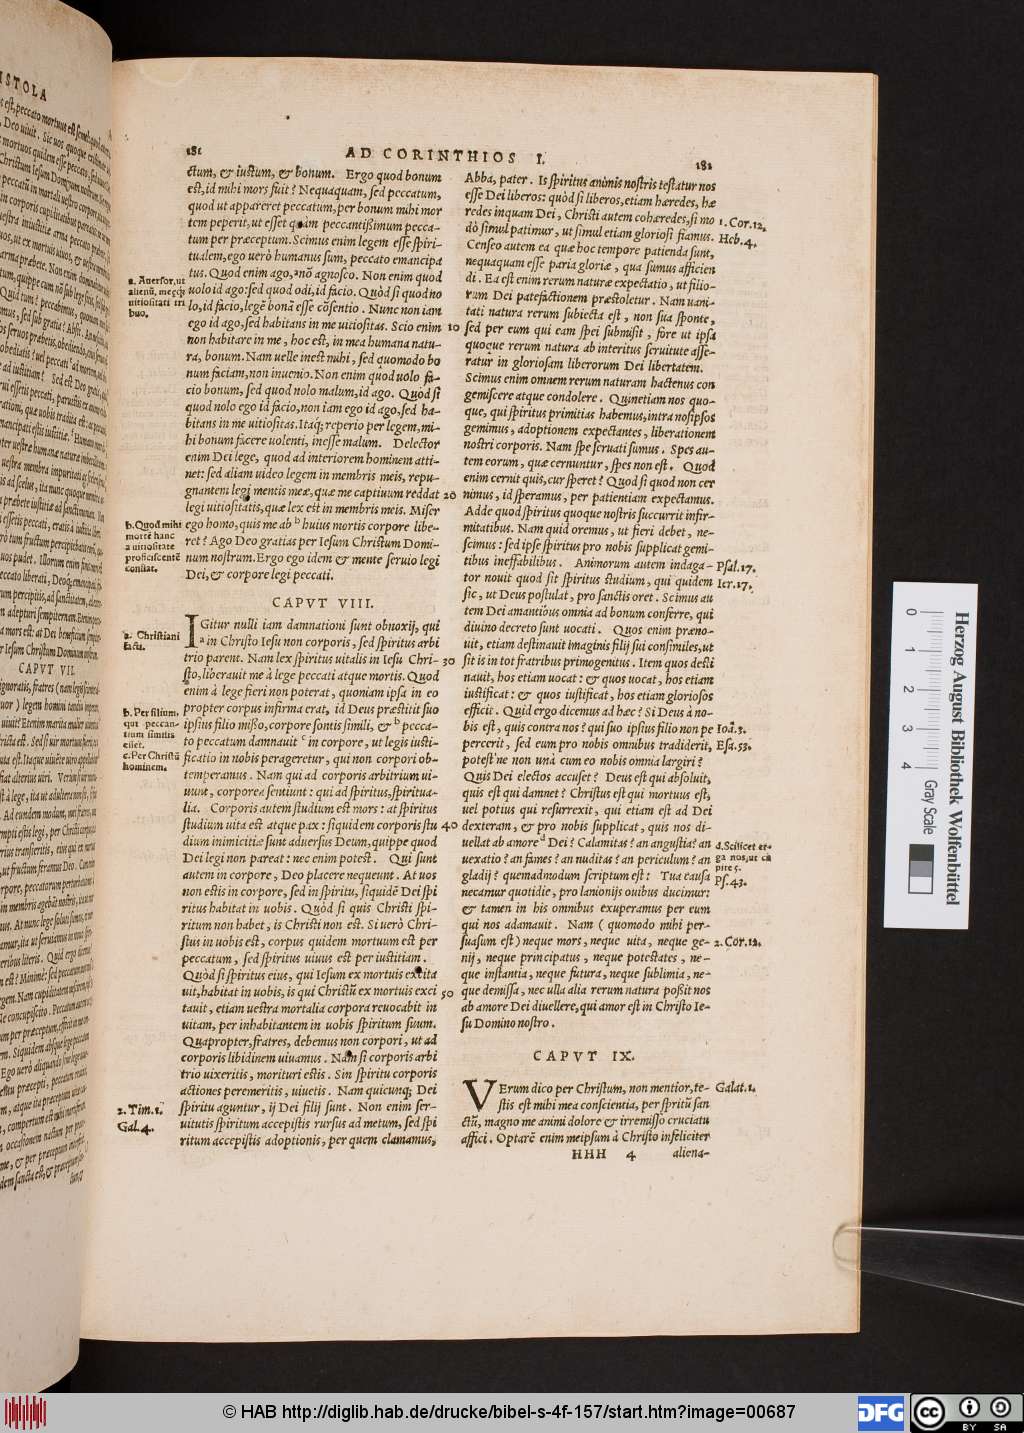 181
AD CORINTHIOS I.
182
ctum, & iustum, & bonum. Ergo quod bonum
est, id mihi mors fuit? Nequaquam, sed peccatum,
quod ut appareret peccatum, per bonum mihi mor
tem peperit, ut esset quàm peccantißimum pecca-
tum per præceptum. Scimus enim legem esse spiri-
tualem, ego uerò humanus sum, peccato emancipa
tus. Quod enim ago, ᵃnō agnosco. Non enim quod
uolo id ago: sed quod odi, id facio. Quòd si quod no
lo, id facio, legē bonā esse cōsentio. Nunc non iam
ego id ago, sed habitans in me uitiositas. Scio enim
non habitare in me, hoc est, in mea humana natu-
ra, bonum. Nam uelle inest mihi, sed quomodo bo
num faciam, non inuenio. Non enim quod uolo fa-
cio bonum, sed quod nolo malum, id ago. Quòd si
quod nolo ego id facio, non iam ego id ago, sed ha-
bitans in me uitiositas. Itaq; reperio per legem, mi-
hi bonum facere uolenti, inesse malum. Delector
enim Dei lege, quod ad interiorem hominem atti-
net: sed aliam uideo legem in membris meis, repu-
gnantem legi mentis meæ, quæ me captiuum reddat
legi uitiositatis, quæ lex est in membris meis. Miser
ego homo, quis me ab ᵇ huius mortis corpore libe-
ret? Ago Deo gratias per Iesum Christum Domi-
num nostrum. Ergo ego idem & mente seruio legi
Dei, & corpore legi peccati.
a. Auersor, ut
alienū, meq́;
uitiositati tri
buo.
b. Quod mihi
mortē hanc
a uitiositate
proficiscentē
consciat.
CAPVT VIII.
IGitur nulli iam damnationi sunt obnoxij, qui
ᵃ in Christo Iesu non corporis, sed spiritus arbi
trio parent. Nam lex spiritus uitalis in Iesu Chri-
sto, liberauit me à lege peccati atque mortis. Quod
enim à lege fieri non poterat, quoniam ipsa in eo
propter corpus infirma erat, id Deus præstitit suo
ipsius filio misso, corpore sontis simili, & ᵇ pecca-
to peccatum damnauit ᶜ in corpore, ut legis iusti-
ficatio in nobis perageretur, qui non corpori ob-
temperamus. Nam qui ad corporis arbitrium ui-
uunt, corporea sentiunt: qui ad spiritus, spiritua-
lia. Corporis autem studium est mors: at spiritus
studium uita est atque pax: siquidem corporis stu
dium inimicitiæ sunt aduersus Deum, quippe quod
Dei legi non pareat: nec enim potest. Qui sunt
autem in corpore, Deo placere nequeunt. At uos
non estis in corpore, sed in spiritu, siquidē Dei spi
ritus habitat in uobis. Quòd si quis Christi spi-
ritum non habet, is Christi non est. Si uerò Chri-
stus in uobis est, corpus quidem mortuum est per
peccatum, sed spiritus uiuus est per iustitiam.
Quòd si spiritus eius, qui Iesum ex mortuis excita
uit, habitat in uobis, is qui Christū ex mortuis exci
tauit, etiam uestra mortalia corpora reuocabit in
uitam, per inhabitantem in uobis spiritum suum.
Quapropter, fratres, debemus non corpori, ut ad
corporis libidinem uiuamus. Nam si corporis arbi
trio uixeritis, morituri estis. Sin spiritu corporis
actiones peremeritis, uiuetis. Nam quicunq; Dei
spiritu aguntur, ij Dei filij sunt. Non enim ser-
uitutis spiritum accepistis rursus ad metum, sed spi
ritum accepistis adoptionis, per quem clamamus,
a. Christiani
facti.
b. Per filium,
qui peccan-
tium similis
esset.
c. Per Christū
hominem.
2. Tim. 1.
Gal. 4.
10
20
30
40
50
Abba, pater. Is spiritus animis nostris testatur nos
esse Dei liberos: quòd si liberos, etiam hæredes, hæ
redes inquam Dei, Christi autem cohæredes, si mo
dò simul patimur, ut simul etiam gloriosi fiamus.
Censeo autem ea quæ hoc tempore patienda sunt,
nequaquam esse paria gloriæ, qua sumus afficien
di. Ea est enim rerum naturæ expectatio, ut filio-
rum Dei patefactionem præstoletur. Nam uani-
tati natura rerum subiecta est, non sua sponte,
sed per eum qui eam spei submisit, fore ut ipsa
quoque rerum natura ab interitus seruitute asse-
ratur in gloriosam liberorum Dei libertatem.
Scimus enim omnem rerum naturam hactenus con
gemiscere atque condolere. Quinetiam nos quo-
que, qui spiritus primitias habemus, intra nosipsos
gemimus, adoptionem expectantes, liberationem
nostri corporis. Nam spe seruati sumus. Spes au-
tem eorum, quæ cernuntur, spes non est. Quod
enim cernit quis, cur speret? Quod si quod non cer
nimus, id speramus, per patientiam expectamus.
Adde quod spiritus quoque nostris succurrit infir-
mitatibus. Nam quid oremus, ut fieri debet, ne-
scimus: sed ipse spiritus pro nobis supplicat gemi-
tibus ineffabilibus. Animorum autem indaga-
tor nouit quod sit spiritus studium, qui quidem
sic, ut Deus postulat, pro sanctis oret. Scimus au
tem Dei amantious omnia ad bonum conferre, qui
diuino decreto sunt uocati. Quos enim præno-
uit, etiam destinauit imaginis filij sui consimiles, ut
sit is in tot fratribus primogenitus. Item quos desti
nauit, hos etiam uocat: & quos uocat, hos etiam
iustificat: & quos iustificat, hos etiam gloriosos
efficit. Quid ergo dicemus ad hæc? Si Deus à no-
bis est, quis contra nos? qui suo ipsius filio non pe
percerit, sed eum pro nobis omnibus tradiderit,
potest' ne non unà cum eo nobis omnia largiri?
Quis Dei electos accuset? Deus est qui absoluit,
quis est qui damnet? Christus est qui mortuus est,
uel potius qui resurrexit, qui etiam est ad Dei
dexteram, & pro nobis supplicat, quis nos di-
uellat ab amore ᵈ Dei? Calamitas? an angustia? an
uexatio? an fames? an nuditas? an periculum? an
gladij? quemadmodum scriptum est: Tua causa
necamur quotidie, pro lanionijs ouibus ducimur:
& tamen in his omnibus exuperamus per eum
qui nos adamauit. Nam (quomodo mihi per-
suasum est) neque mors, neque uita, neque ge-
nij, neque principatus, neque potestates, ne-
que instantia, neque futura, neque sublimia, ne-
que demissa, nec ulla alia rerum natura poßit nos
ab amore Dei diuellere, qui amor est in Christo Ie-
su Domino nostro.
1. Cor. 12.
Heb. 4.
Psal. 17.
Ier. 17.
Ioā. 3.
Esa. 53.
d. Scilicet er-
ga nos, ut ca
pite 5.
Ps. 43.
2. Cor. 12.
CAPVT IX.
VErum dico per Christum, non mentior, te-
stis est mihi mea conscientia, per spritū san
ctū, magno me animi dolore & irremisso cruciatu
affici. Optarē enim meipsum à Christo infeliciter
Galat. 1.
HHH 4
aliena-
Herzog August Bibliothek Wolfenbüttel
0 1 2 3 4
Gray Scale
© HAB http://diglib.hab.de/drucke/bibel-s-4f-157/start.htm?image=00687
DFG
cc BY SA